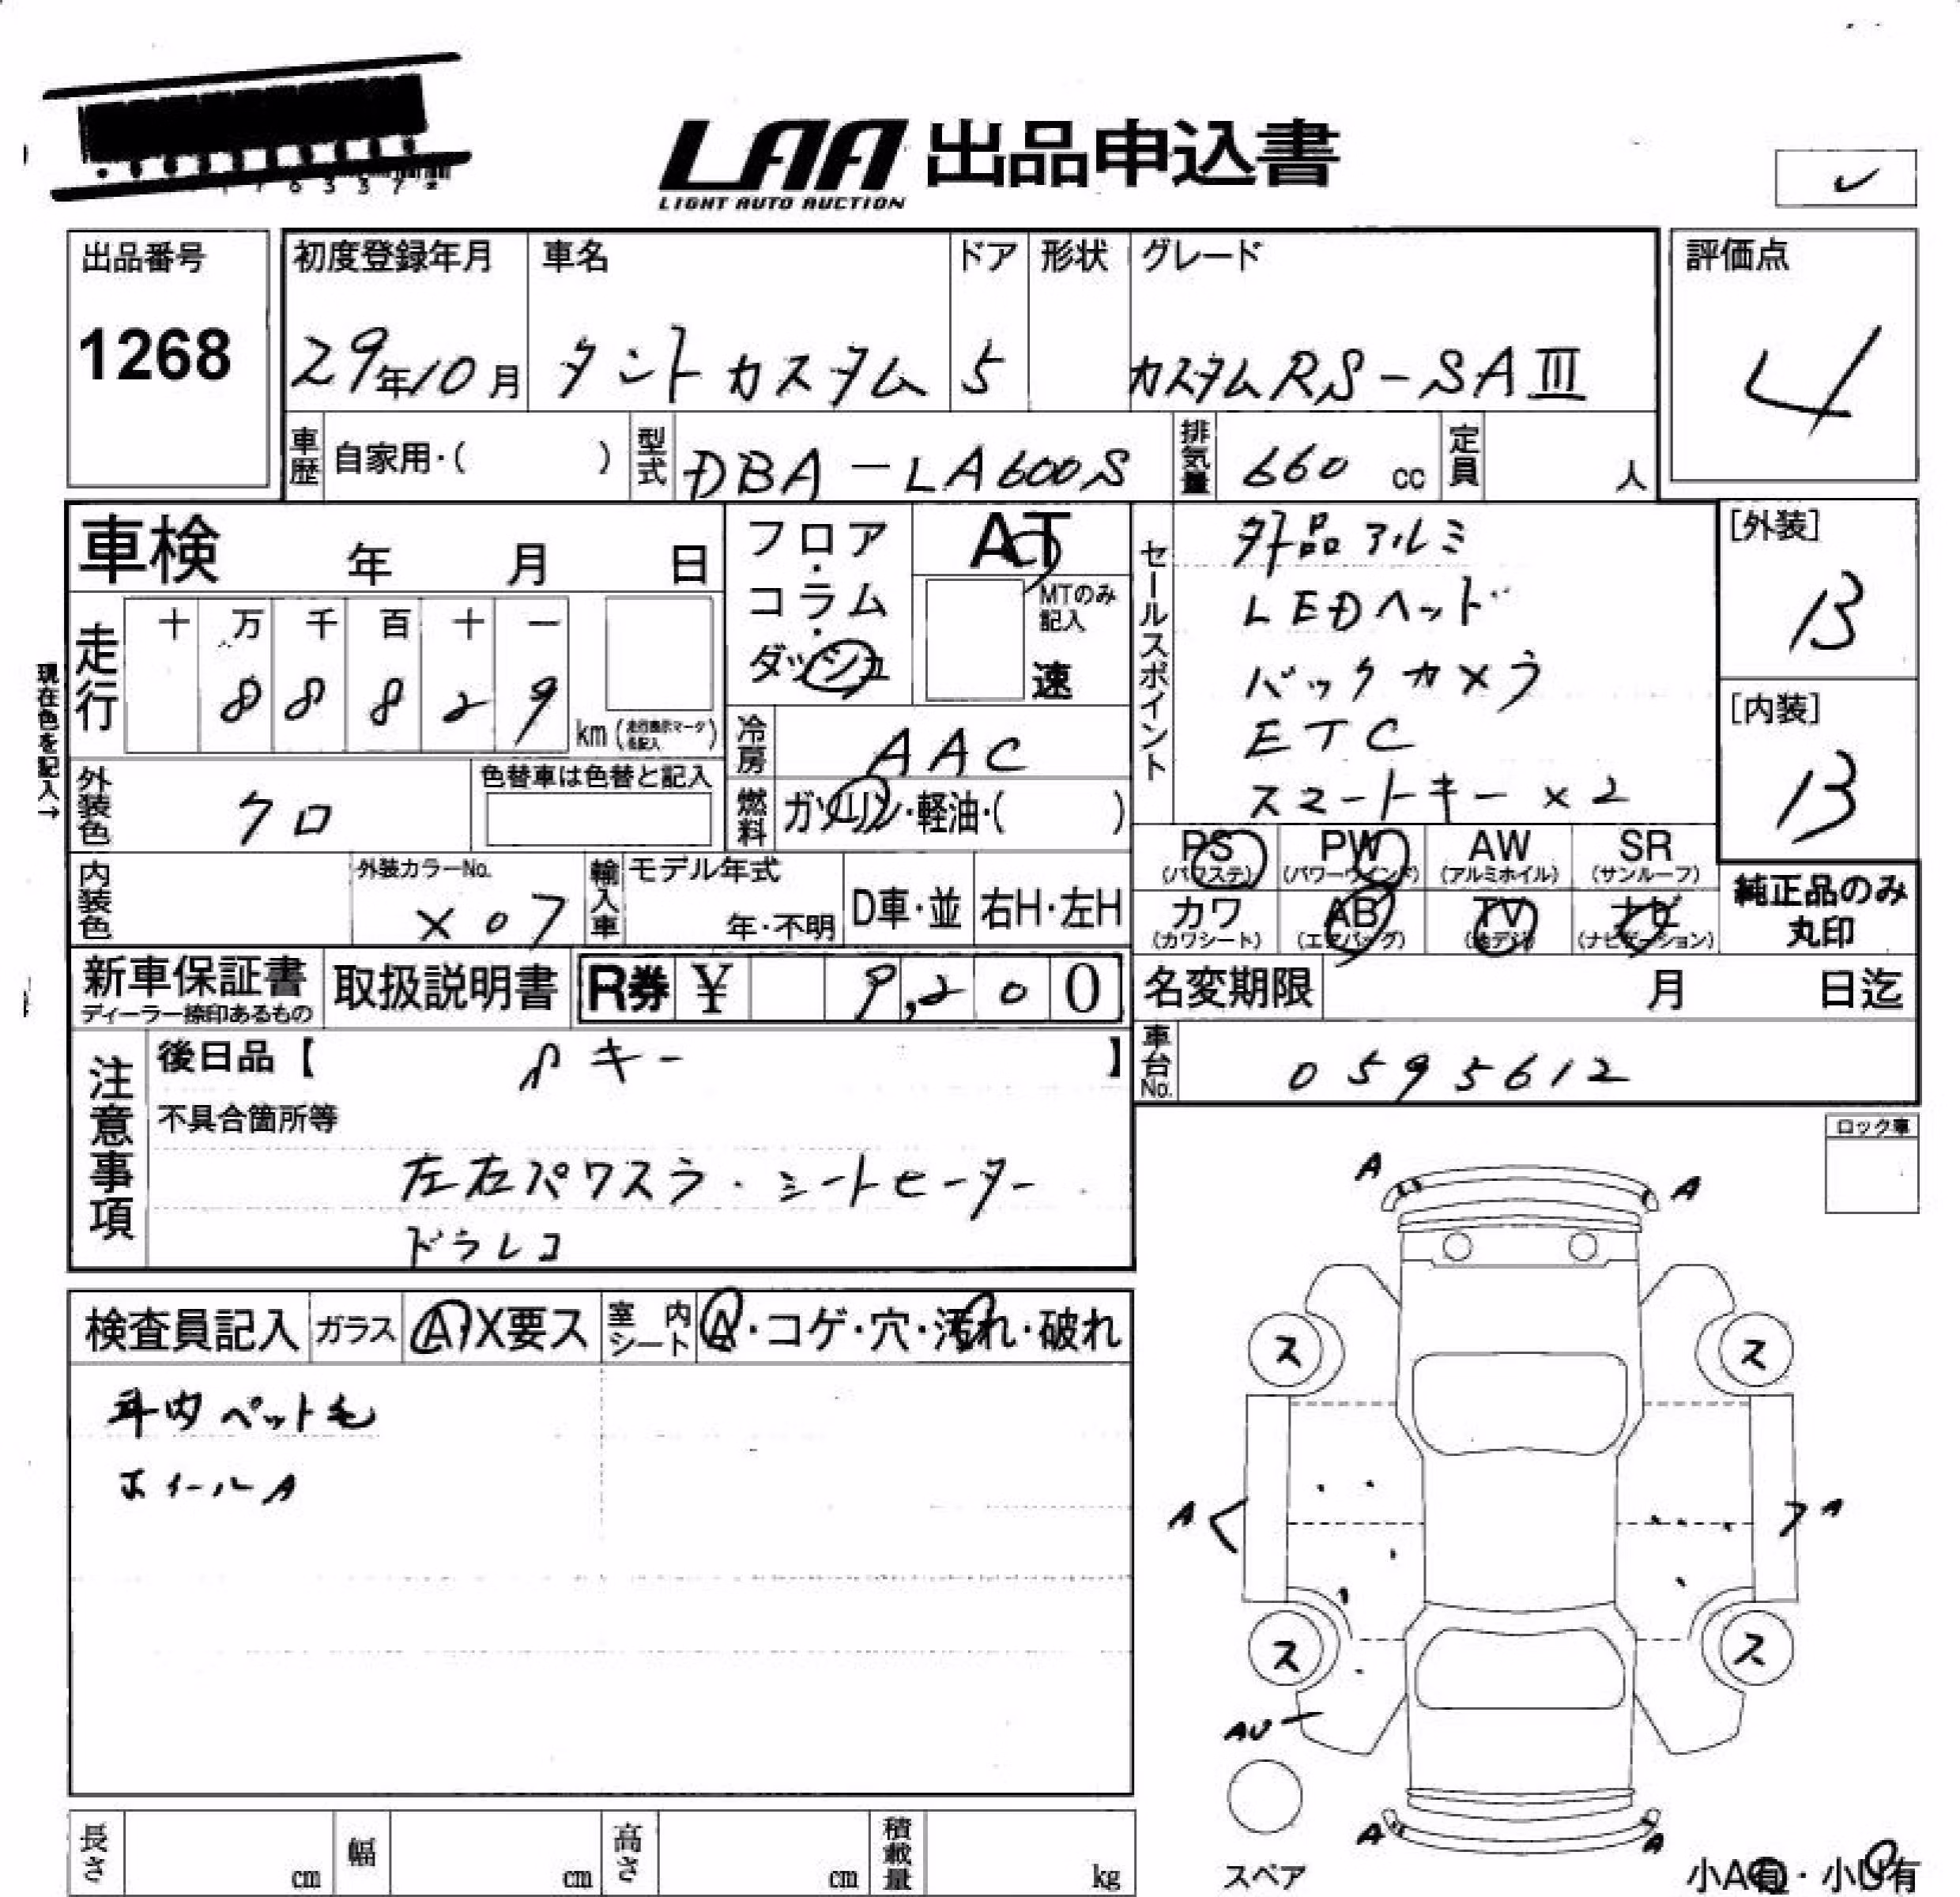 LAA 出品申込書
LIGHT AUTO AUCTION
出品番号
1268
初度登録年月 車名 ドア 形状 グレード
29年10月 タントカスタム 5 カスタムRS-SAⅢ
評価点
4
車歴 自家用・( ) 型式 DBA-LA600S 排気量 660 cc 定員 人
車検 年 月 日
フロア・コラム・ダッシュ
AT
MTのみ記入
速
走行 十 万 千 百 十 一
8 8 8 2 9
km
現在色を記入→
冷房 AAC
燃料 ガソリン・軽油・( )
外装色 クロ
色替車は色替と記入
内装色
外装カラーNo.
X07
輸入車 モデル年式
年・不明
D車・並 右H・左H
セールスポイント
外品アルミ
LEDヘッド
バックカメラ
ETC
スマートキー×2
[外装]
B
[内装]
B
PS PW AW SR
(パワステ) (パワーウインド) (アルミホイル) (サンルーフ)
カワ AB TV ナビ
(カワシート) (エアバッグ) (地デジ) (ナビゲーション)
純正品のみ
丸印
新車保証書
ディーラー捺印あるもの
取扱説明書
R券 ¥ 9,200
名変期限 月 日迄
車台No. 0595612
注意事項
後日品【 キー 】
不具合箇所等
左右パワスラ・シートヒーター
ドラレコ
ロック車
検査員記入 ガラス A・X要ス 室内シート A・コゲ・穴・汚れ・破れ
車内ペット毛
ホイールA
A A
ス ス
A A
ス ス
AU
A A
スペア
小A有・小U有
長さ cm 幅 cm 高さ cm 積載量 kg